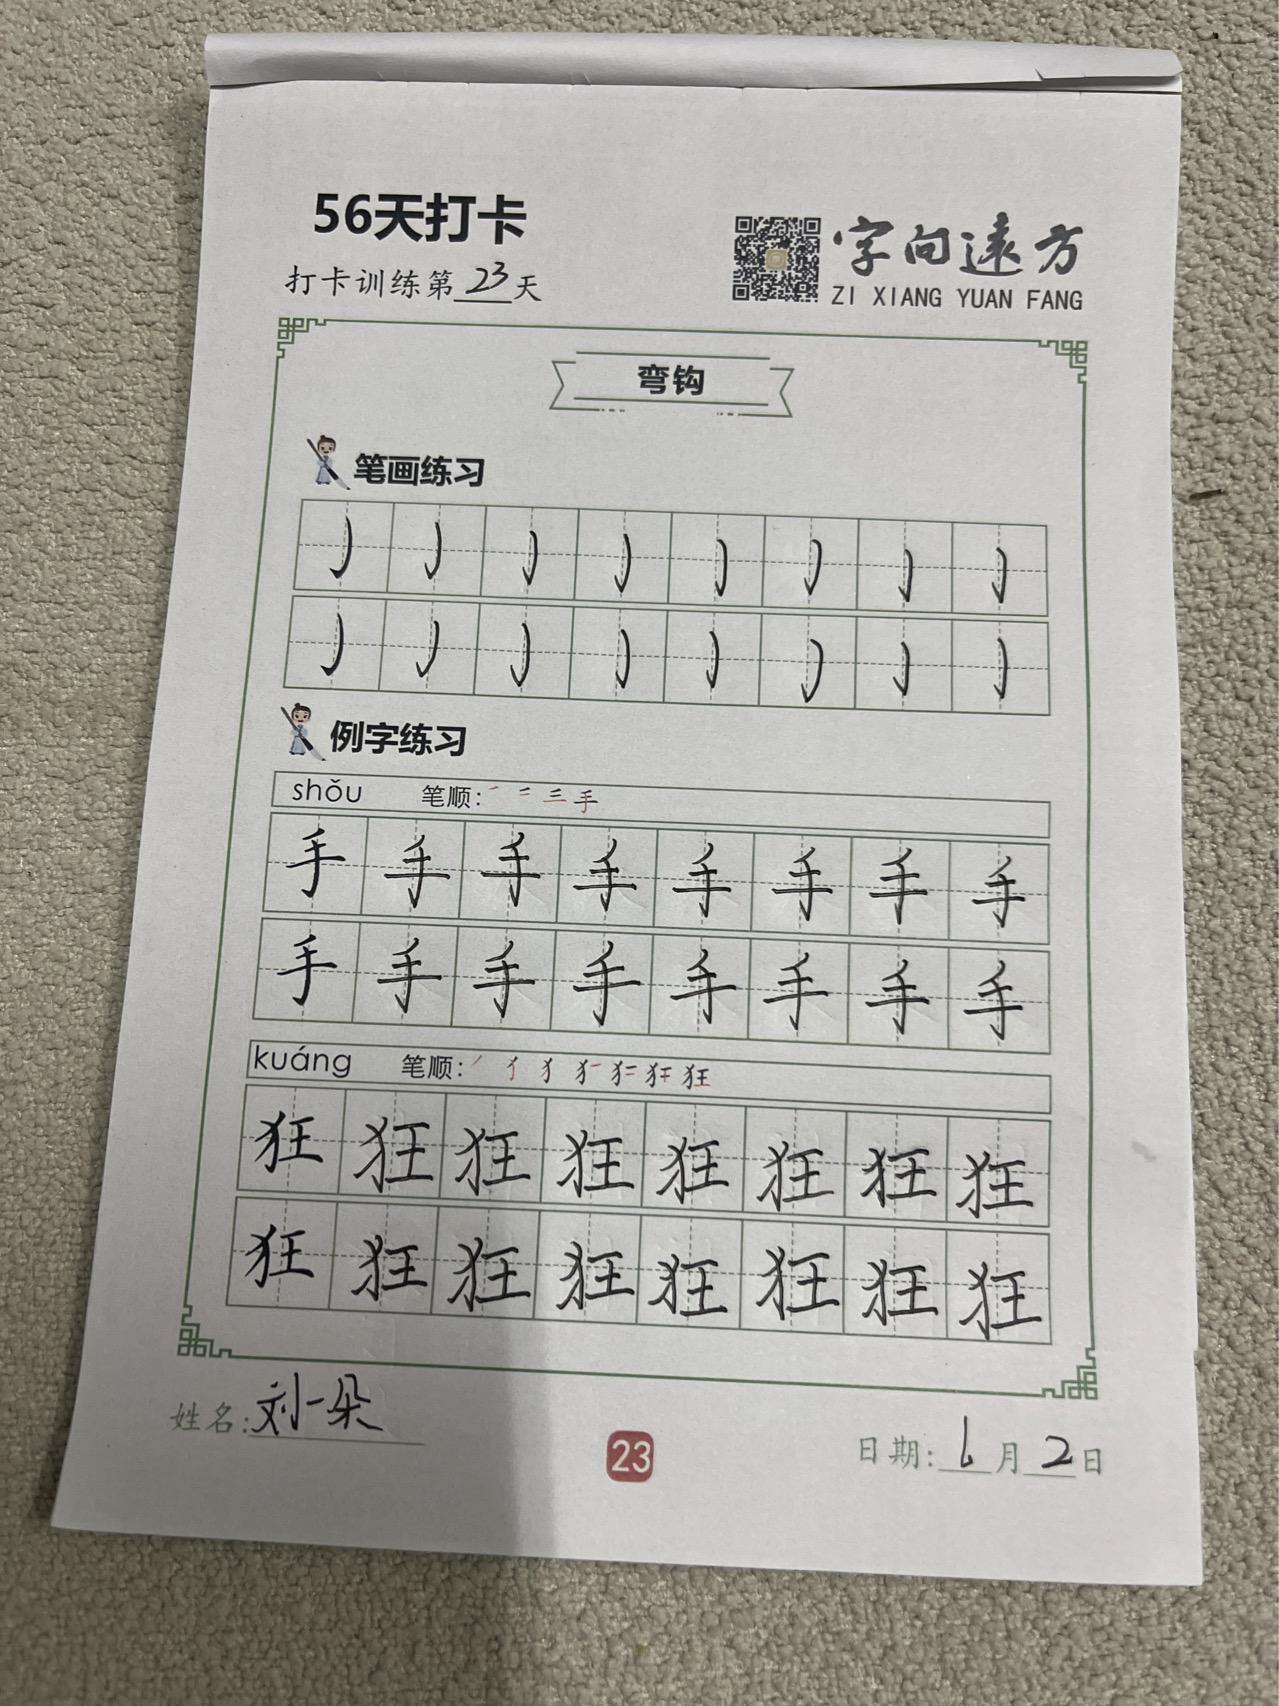 56天打卡
打卡训练第23天
字向远方
ZI XIANG YUAN FANG
弯钩
笔画练习
㇁ ㇁ ㇁ ㇁ ㇁ ㇁ ㇁ ㇁
㇁ ㇁ ㇁ ㇁ ㇁ ㇁ ㇁ ㇁
例字练习
shǒu 笔顺: ㇒ 二 三 手
手 手 手 手 手 手 手 手
手 手 手 手 手 手 手 手
kuáng 笔顺: ㇒ 犭 狂
狂 狂 狂 狂 狂 狂 狂 狂
狂 狂 狂 狂 狂 狂 狂 狂
姓名:刘一朵
23
日期:6月2日